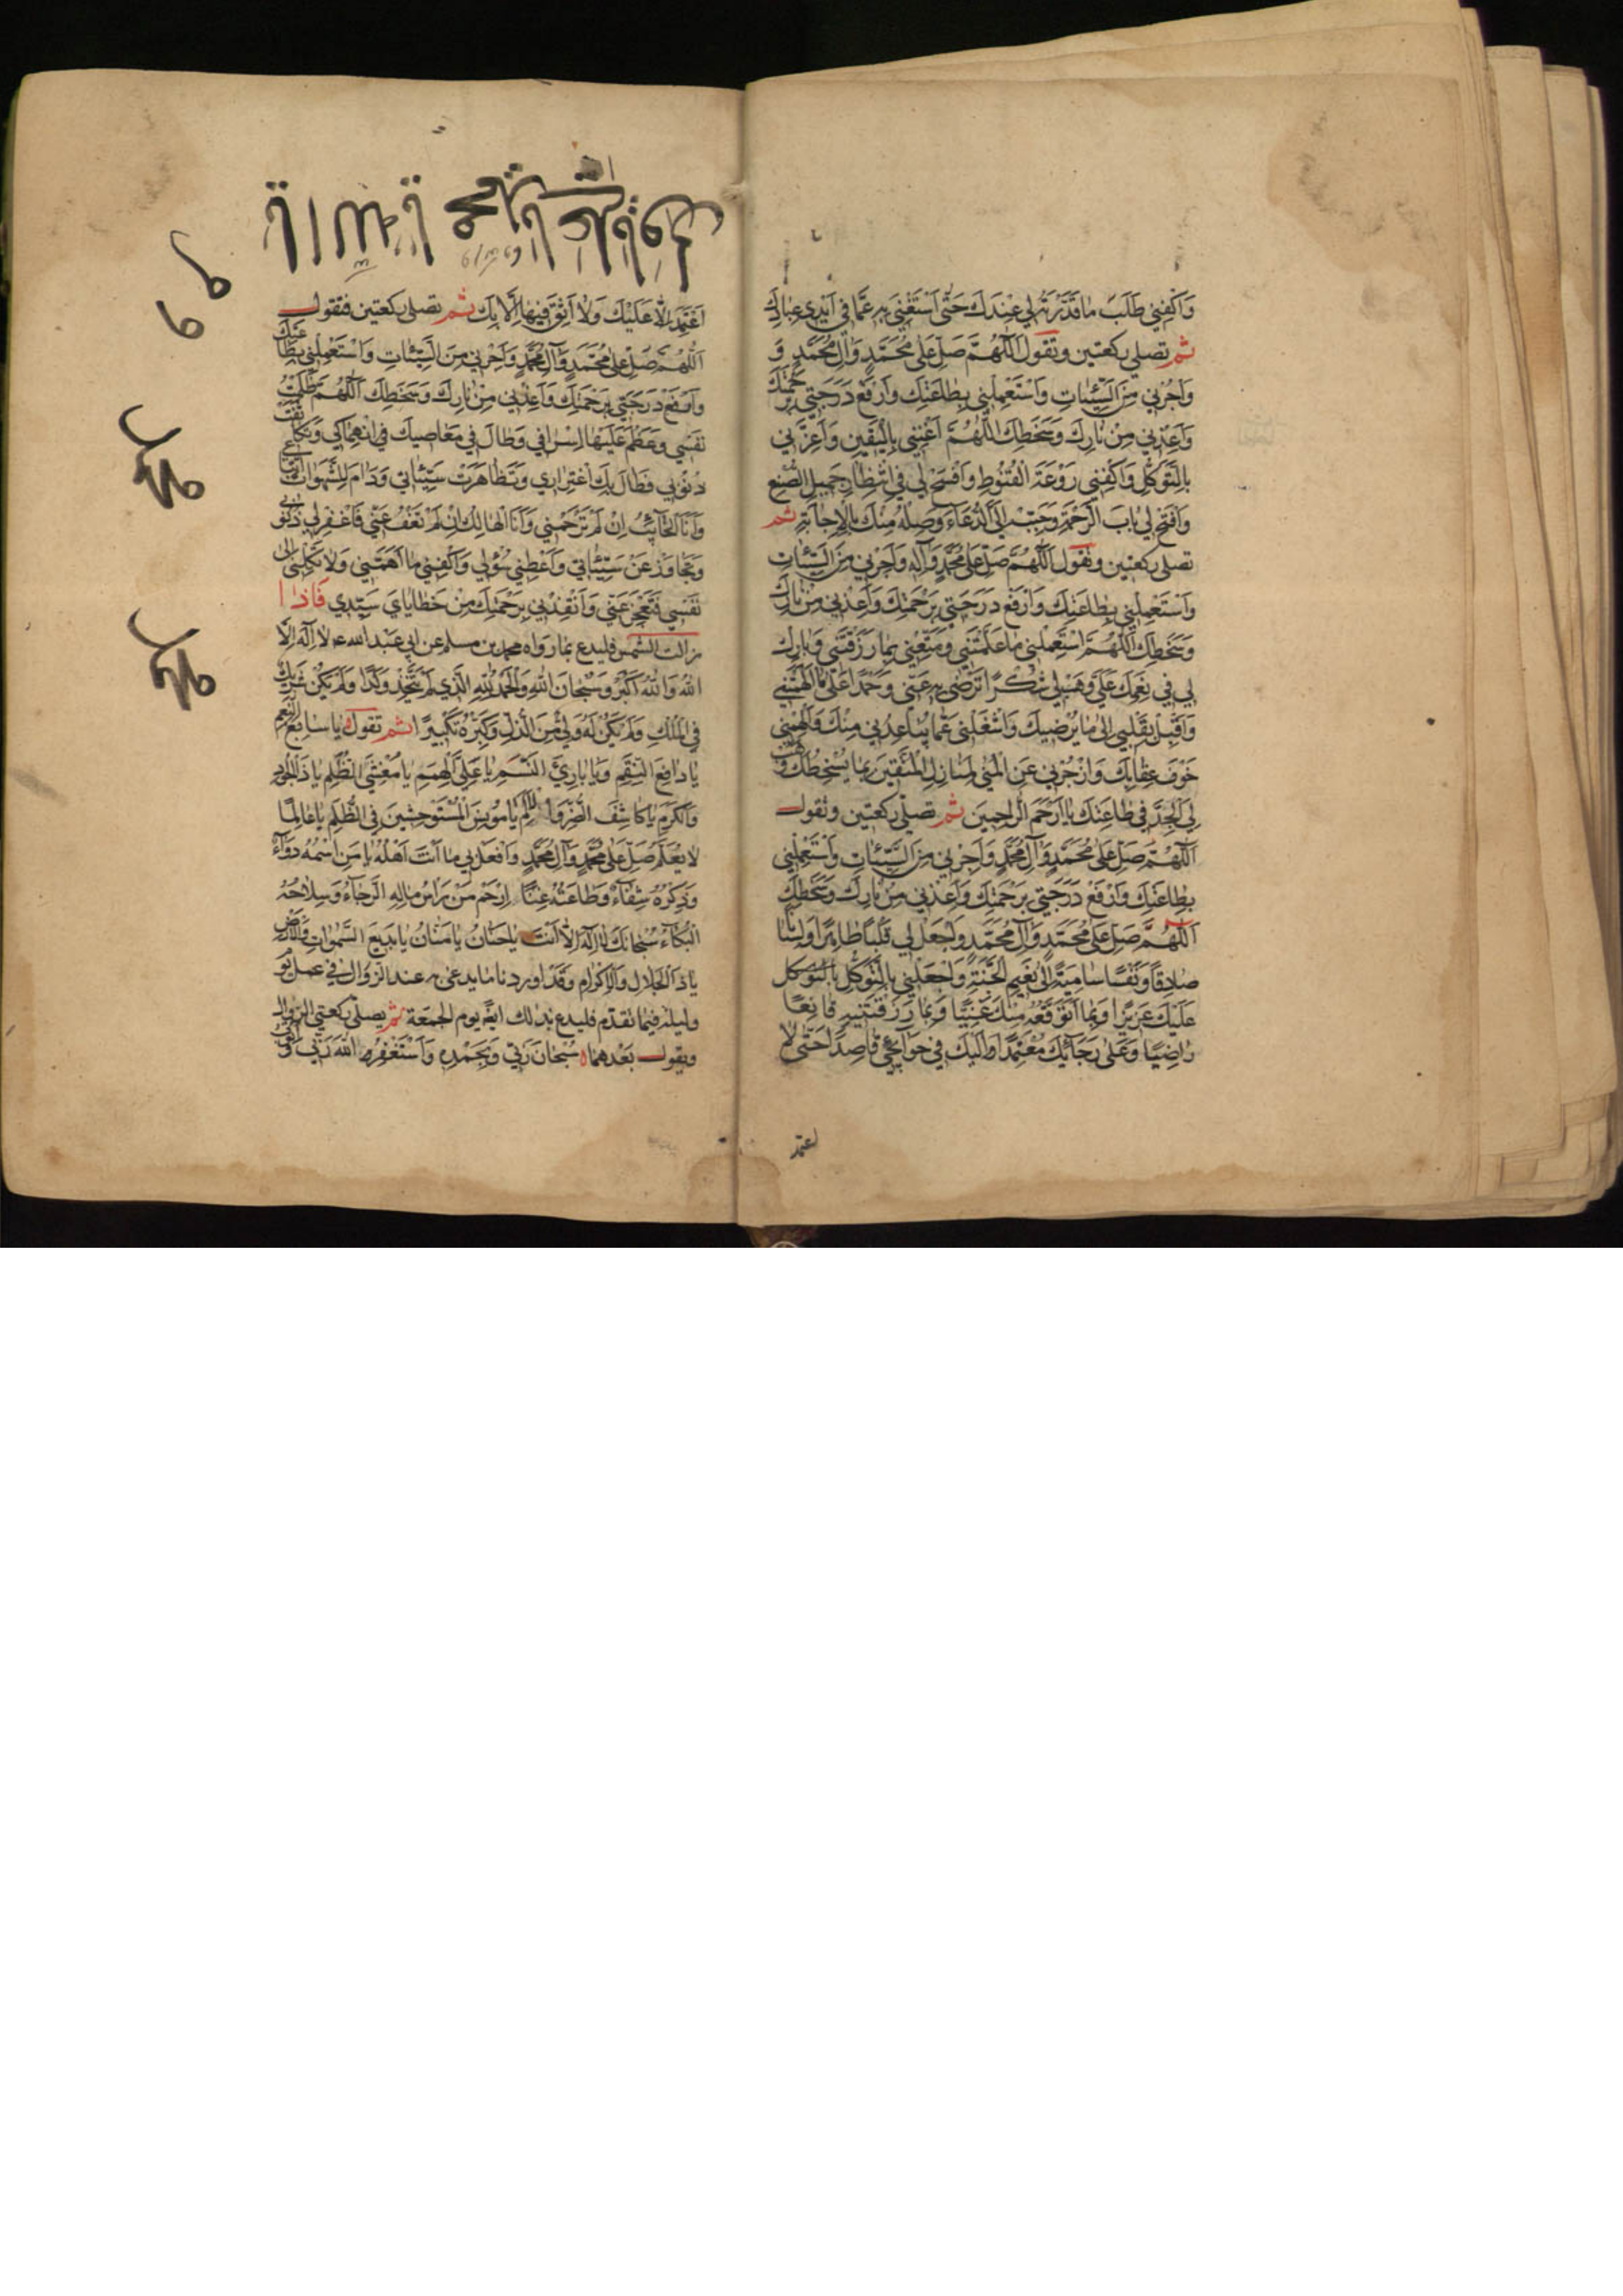 وَاكْفِنِي طَلَبَ مَا قَدَّرْتَهُ لِي عِنْدَكَ حَتَّى اَسْتَغْنِيَ بِهِ عَمَّا فِي اَيْدِي عِبَادِكَ
ثم تصلي ركعتين وتقول اَللّٰهُمَّ صَلِّ عَلَى مُحَمَّدٍ وَآلِ مُحَمَّدٍ وَ
وَاَجِرْنِي مِنَ السَّيِّئَاتِ وَاسْتَعْمِلْنِي بِطَاعَتِكَ وَارْفَعْ دَرَجَتِي بِرَحْمَتِكَ
وَاَعِذْنِي مِنْ نَارِكَ وَسَخَطِكَ اَللّٰهُمَّ اَغْنِنِي بِالْيَقِينِ وَاَعِزَّنِي
بِالتَّوَكُّلِ وَاكْفِنِي رَوْعَةَ الْقُنُوطِ وَافْسَحْ لِي فِي انْتِظَارِ جَمِيلِ الصُّنْعِ
وَافْتَحْ لِي بَابَ الرَّحْمَةِ وَحَبِّبْ اِلَيَّ الدُّعَاءَ وَصِلْهُ مِنْكَ بِالْاِجَابَةِ ثم
تصلي ركعتين وتقول اَللّٰهُمَّ صَلِّ عَلَى مُحَمَّدٍ وَآلِهِ وَاَجِرْنِي مِنَ السَّيِّئَاتِ
وَاسْتَعْمِلْنِي بِطَاعَتِكَ وَارْفَعْ دَرَجَتِي بِرَحْمَتِكَ وَاَعِذْنِي مِنْ نَارِكَ
وَسَخَطِكَ اَللّٰهُمَّ اسْتَعْمِلْنِي مَا عَلَّمْتَنِي وَمَتِّعْنِي بِمَا رَزَقْتَنِي وَبَارِكْ
لِي فِي نِعَمِكَ عَلَيَّ وَهَبْ لِي شُكْرًا تَرْضَى بِهِ عَنِّي وَحَمْدًا عَلَى مَا اَلْهَمْتَنِي
وَاَقْبِلْ بِقَلْبِي اِلَى مَا يُرْضِيكَ وَاشْغَلْنِي عَمَّا يُبَاعِدُنِي مِنْكَ وَاَلْهِمْنِي
خَوْفَ عِقَابِكَ وَازْجُرْنِي عَنِ الْمُنَى لِمَنَازِلِ الْمُتَّقِينَ بِمَا يُسْخِطُكَ وَهَبْ
لِيَ الْجِدَّ فِي طَاعَتِكَ يَا اَرْحَمَ الرَّاحِمِينَ ثم تصلي ركعتين وتقول
اَللّٰهُمَّ صَلِّ عَلَى مُحَمَّدٍ وَآلِ مُحَمَّدٍ وَاَجِرْنِي مِنَ السَّيِّئَاتِ وَاسْتَعْمِلْنِي
بِطَاعَتِكَ وَارْفَعْ دَرَجَتِي بِرَحْمَتِكَ وَاَعِذْنِي مِنْ نَارِكَ وَسَخَطِكَ
اَللّٰهُمَّ صَلِّ عَلَى مُحَمَّدٍ وَآلِ مُحَمَّدٍ وَاجْعَلْ لِي قَلْبًا طَاهِرًا وَلِسَانًا
صَادِقًا وَنَفْسًا سَامِيَةً اِلَى نَعِيمِ الْجَنَّةِ وَاجْعَلْنِي بِالتَّوَكُّلِ بِالتَّوَكُّلِ
عَلَيْكَ عَزِيزًا وَبِمَا اَتَوَقَّعُهُ مِنْكَ غَنِيًّا وَبِمَا رَزَقْتَنِيهِ قَانِعًا
رَاضِيًا وَعَلَى رَجَائِكَ مُعْتَمِدًا وَاِلَيْكَ فِي حَوَائِجِي قَاصِدًا حَتَّى لَا
اعتمد
اَعْتَمِدَ اِلَّا عَلَيْكَ وَلَا اَثِقَ فِيهَا اِلَّا بِكَ ثم تصلي ركعتين فتقول
اَللّٰهُمَّ صَلِّ عَلَى مُحَمَّدٍ وَآلِ مُحَمَّدٍ وَاَجِرْنِي مِنَ السَّيِّئَاتِ وَاسْتَعْمِلْنِي بِطَاعَتِكَ
وَارْفَعْ دَرَجَتِي بِرَحْمَتِكَ وَاَعِذْنِي مِنْ نَارِكَ وَسَخَطِكَ اَللّٰهُمَّ ظَلَمْتُ
نَفْسِي وَعَظُمَ عَلَيْهَا اِسْرَافِي وَطَالَ فِي مَعَاصِيكَ انْهِمَاكِي وَتَكَاثَفَتْ
ذُنُوبِي فَطَالَ بِكَ اغْتِرَارِي وَتَظَاهَرَتْ سَيِّئَاتِي وَدَامَ لِلشَّهَوَاتِ اتِّبَاعِي
وَاَنَا الْخَائِبُ اِنْ لَمْ تَرْحَمْنِي وَاَنَا الْهَالِكُ اِنْ لَمْ تَعْفُ عَنِّي فَاغْفِرْ لِي ذُنُوبِي
وَتَجَاوَزْ عَنْ سَيِّئَاتِي وَاَعْطِنِي سُؤْلِي وَاكْفِنِي مَا اَهَمَّنِي وَلَا تَكِلْنِي اِلَى
نَفْسِي فَتَعْجِزَ عَنِّي وَاَنْقِذْنِي بِرَحْمَتِكَ مِنْ خَطَايَايَ سَيِّدِي فَاِذَا
زالت الشمس فليدع بما رواه محمد بن مسلم عن ابي عبد الله ع لَا اِلٰهَ اِلَّا
اللّٰهُ وَاللّٰهُ اَكْبَرُ وَسُبْحَانَ اللّٰهِ وَالْحَمْدُ لِلّٰهِ الَّذِي لَمْ يَتَّخِذْ وَلَدًا وَلَمْ يَكُنْ لَهُ شَرِيكٌ
فِي الْمُلْكِ وَلَمْ يَكُنْ لَهُ وَلِيٌّ مِنَ الذُّلِّ وَكَبِّرْهُ تَكْبِيرًا ثم تقول يَا سَابِغَ النِّعَمِ
يَا دَافِعَ النِّقَمِ وَيَا بَارِئَ النَّسَمِ يَا عَلِيَّ الْهِمَمِ يَا مُغْشِيَ الظُّلَمِ يَا ذَا الْجُودِ
وَالْكَرَمِ يَا كَاشِفَ الضُّرِّ وَالْاَلَمِ يَا مُونِسَ الْمُسْتَوْحِشِينَ فِي الظُّلَمِ يَا عَالِمًا
لَا يُعَلَّمُ صَلِّ عَلَى مُحَمَّدٍ وَآلِ مُحَمَّدٍ وَافْعَلْ بِي مَا اَنْتَ اَهْلُهُ يَا مَنِ اسْمُهُ دَوَاءٌ
وَذِكْرُهُ شِفَاءٌ وَطَاعَتُهُ غِنًا اِرْحَمْ مَنْ رَاْسُ مَالِهِ الرَّجَاءُ وَسِلَاحُهُ
الْبُكَاءُ سُبْحَانَكَ لَا اِلٰهَ اِلَّا اَنْتَ يَا حَنَّانُ يَا مَنَّانُ يَا بَدِيعَ السَّمٰوَاتِ وَالْاَرْضِ
يَا ذَا الْجَلَالِ وَالْاِكْرَامِ وَقَدْ اوردنا ما يدعى به عند الزوال في عمل يوم
وليلة فيما تقدم فليدع بذلك ايضا يوم الجمعة ثم يصلي ركعتي الزوال
ويقول بعدهما سُبْحَانَ رَبِّي وَبِحَمْدِهِ وَاَسْتَغْفِرُ اللّٰهَ رَبِّي وَاَتُوبُ